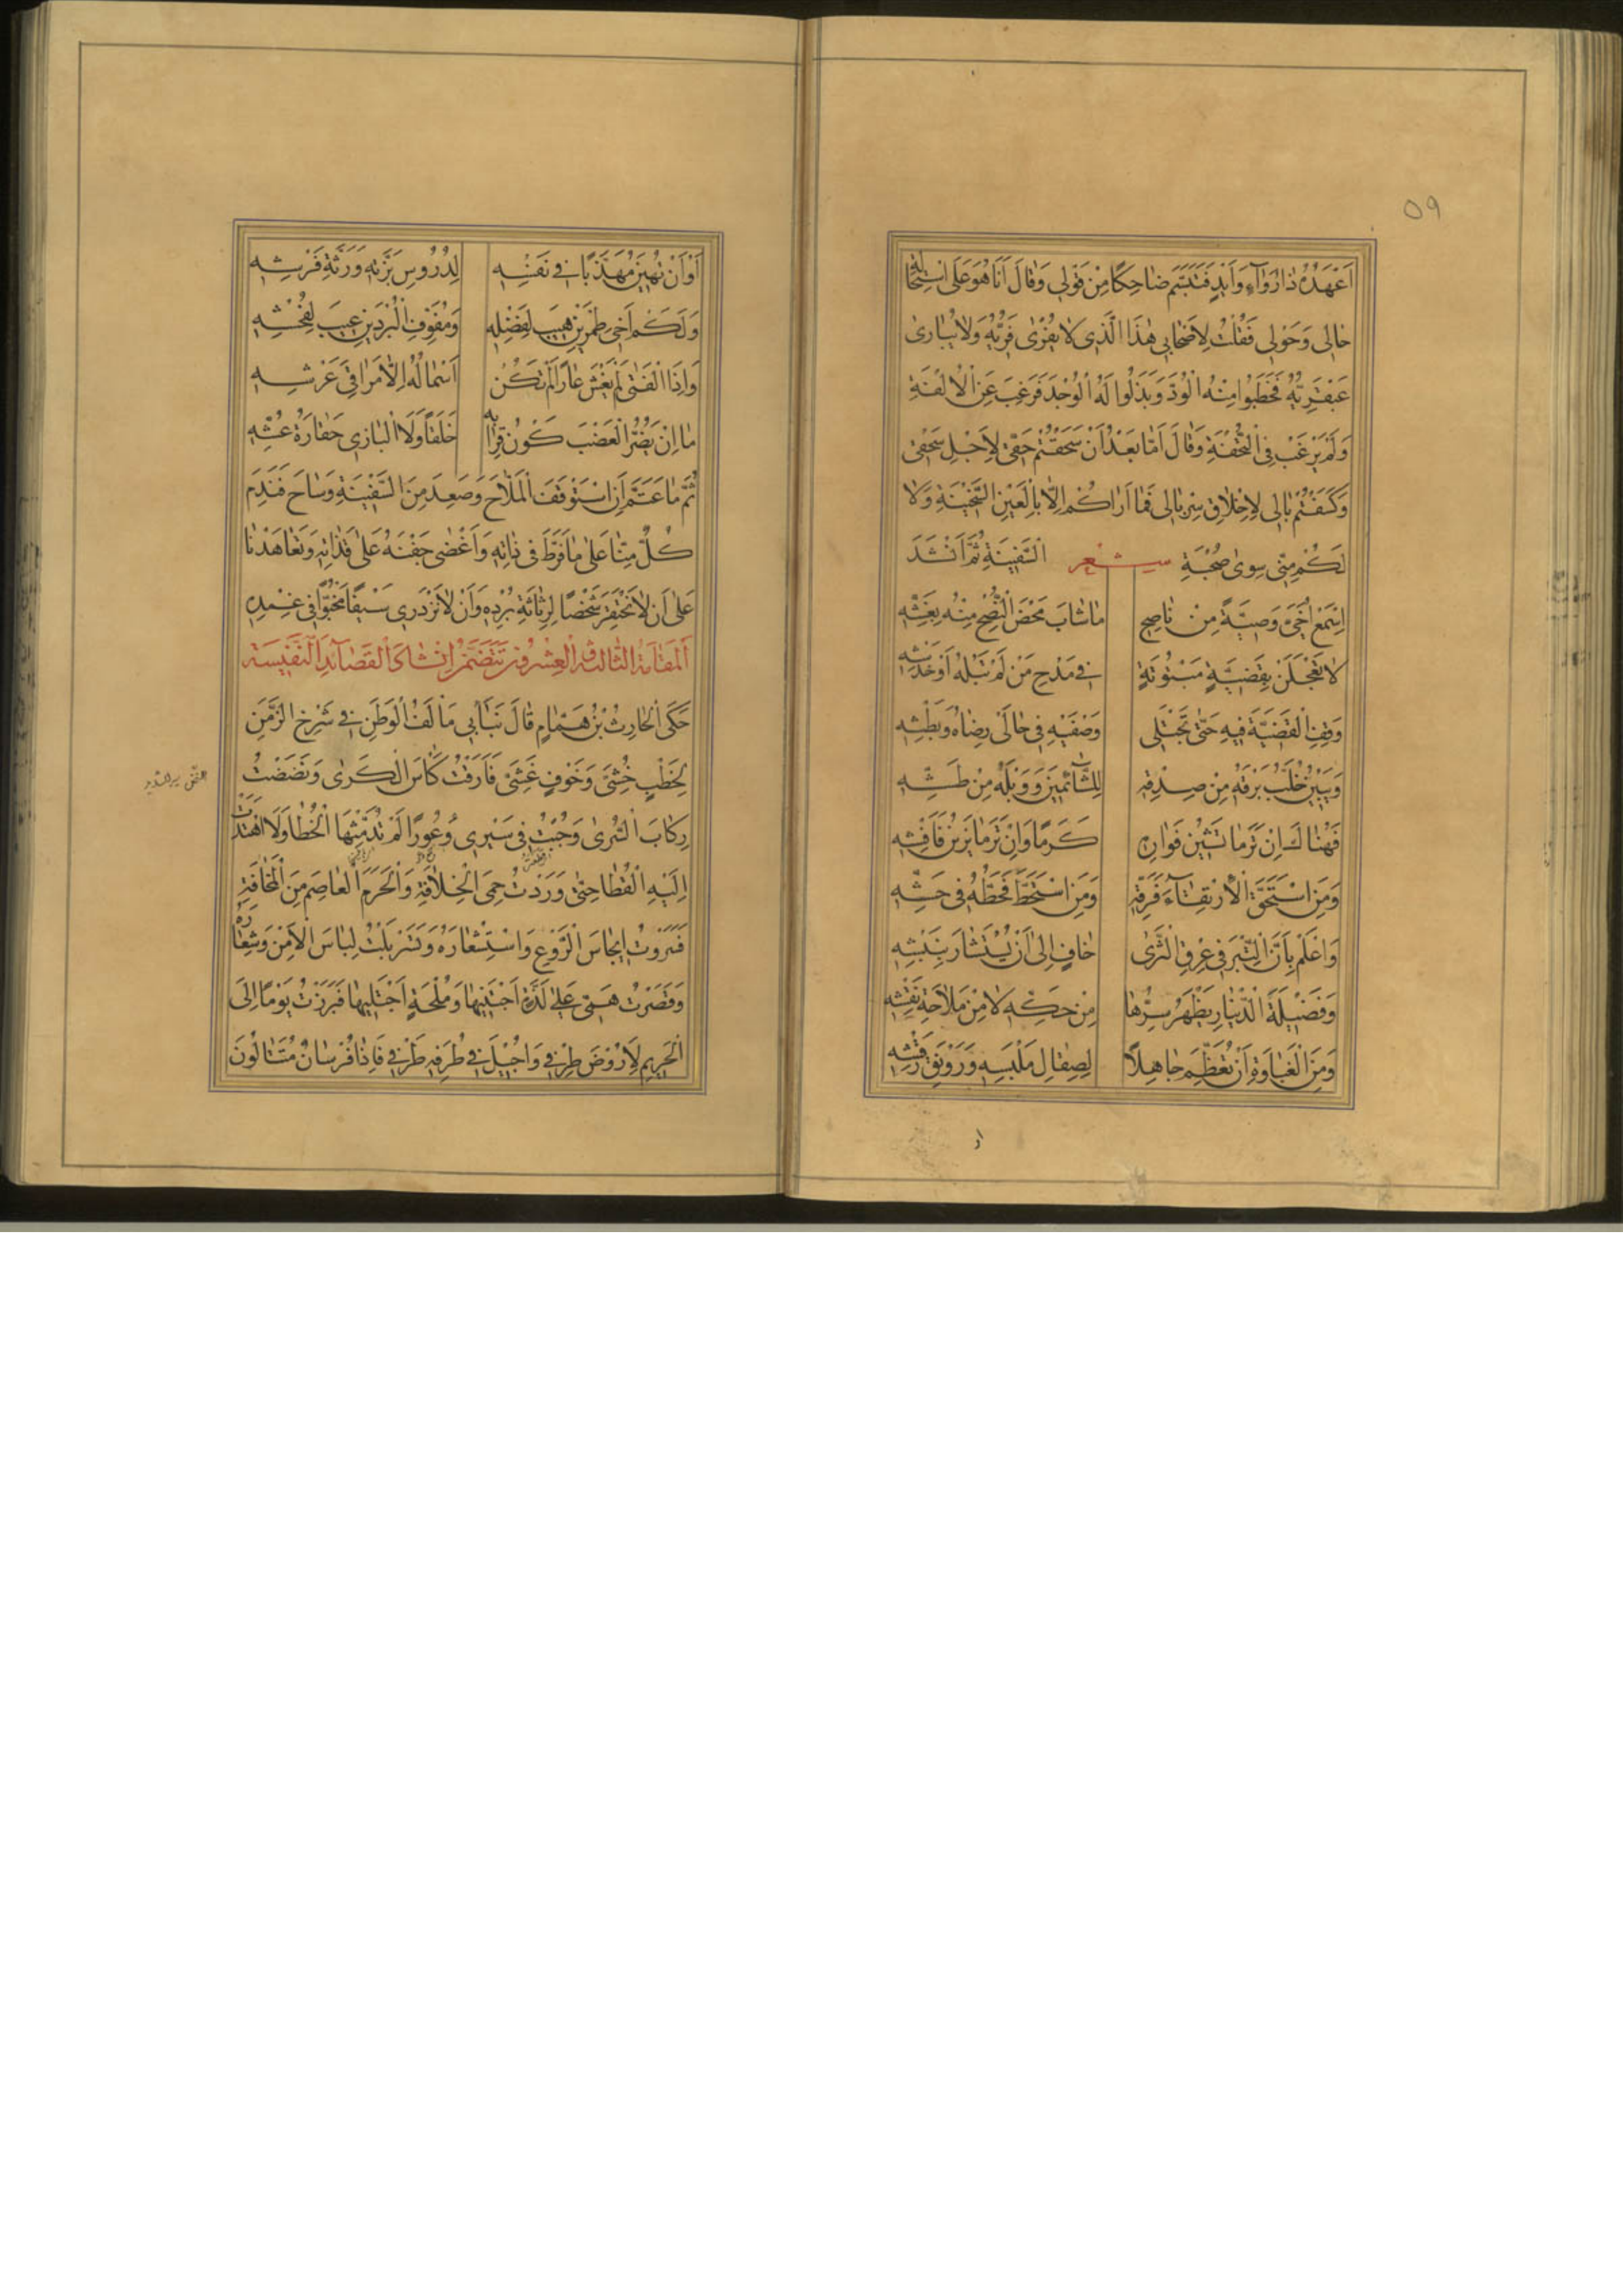 ٥٩
اَعْهَدُهُ ذَا رُوَآءٍ وَاَيْدٍ فَتَبَسَّمَ ضَاحِكًا مِنْ قَوْلِى وَقَالَ اَنَا هُوَ عَلَى اسْتِحَالَةِ
حَالِى وَحَوْلِى فَقُلْتُ لِاَصْحَابِى هٰذَا الَّذِى لَا يُفْرٰى فَرِيُّهُ وَلَا يُبَارٰى
عَبْقَرِيُّهُ فَخَطَبُوا مِنْهُ الْوُدَّ وَبَذَلُوا لَهُ الْوُجْدَ فَرَغِبَ عَنِ الْاُلْفَةِ
وَلَمْ يَرْغَبْ فِى التُّحْفَةِ وَقَالَ اَمَّا بَعْدَ اَنْ سَحَقْتُمْ حَقِّى لِاَجْلِ سَحْقِى
وَكَسَفْتُمْ بَالِى لِاِخْلَاقِ سِرْبَالِى فَمَا اَرَاكُمْ اِلَّا بِالْعَيْنِ السَّخِيْنَةِ وَلَا
لَكُمْ مِنِّى سِوٰى صُحْبَةِ السَّفِيْنَةِ ثُمَّ اَنْشَدَ شعر
اِسْمَعْ اُخَىَّ وَصِيَّةً مِنْ نَاصِحٍ مَا شَابَ مَحْضَ النُّصْحِ مِنْهُ بِغِشِّهِ
لَا تَعْجَلَنْ بِقَضِيَّةٍ مَبْتُوتَةٍ فِى مَدْحِ مَنْ لَمْ تَبْلُهُ اَوْ خَدْشِهِ
وَقِفِ الْقَضِيَّةَ فِيهِ حَتّٰى تَجْتَلِى وَصْفَيْهِ فِى حَالَىْ رِضَاهُ وَبَطْشِهِ
وَيَبِيْنَ خُلَّبُ بَرْقِهِ مِنْ صِدْقِهِ لِلشَّائِمِيْنَ وَوَبْلُهُ مِنْ طَشِّهِ
فَهُنَاكَ اِنْ تَرَ مَا يَشِيْنُ فَوَارِهِ كَرَمًا وَاِنْ تَرَ مَا يَزِيْنُ فَاَفْشِهِ
وَمَنِ اسْتَحَقَّ الْاِرْتِقَآءَ فَرَقِّهِ وَمَنِ اسْتَحَطَّ فَحُطَّهُ فِى حَشِّهِ
وَاعْلَمْ بِاَنَّ التِّبْرَ فِى عِرْقِ الثَّرٰى خَافٍ اِلٰى اَنْ يُسْتَثَارَ بِنَبْشِهِ
وَفَضِيْلَةُ الدِّيْنَارِ يَظْهَرُ سِرُّهَا مِنْ حَكِّهِ لَا مِنْ مَلَاحَةِ نَقْشِهِ
وَمِنَ الْغَبَاوَةِ اَنْ تُعَظِّمَ جَاهِلًا لِصِقَالِ مَلْبَسِهِ وَرَوْنَقِ رَقْشِهِ
اَوْ اَنْ تُهِيْنَ مُهَذَّبًا فِى نَفْسِهِ لِدُرُوسِ بَزَّتِهِ وَرَثَّةِ فَرْشِهِ
وَلَكَمْ اَخِى طِمْرَيْنِ هِيْبَ لِفَضْلِهِ وَمُفَوَّفِ الْبُرْدَيْنِ عِيْبَ لِفُحْشِهِ
وَاِذَا الْفَتٰى لَمْ يَغْشَ عَارًا لَمْ تَكُنْ اَسْمَالُهُ اِلَّا مَرَاقِىَ عَرْشِهِ
مَا اِنْ يَضُرُّ الْعَضْبَ كَوْنُ قِرَابِهِ خَلَقًا وَلَا الْبَازِى حَقَارَةُ عُشِّهِ
ثُمَّ مَا عَتَّمَ اَنِ اسْتَوْقَفَ الْمَلَّاحَ وَصَعِدَ مِنَ السَّفِيْنَةِ وَسَاحَ فَنَدِمَ
كُلٌّ مِنَّا عَلٰى مَا فَرَّطَ فِى ذَاتِهِ وَاَغْضٰى جَفْنَهُ عَلٰى قَذَاتِهِ وَتَعَاهَدْنَا
عَلٰى اَنْ لَا نَحْتَقِرَ شَخْصًا لِرَثَاثَةِ بُرْدِهِ وَاَنْ لَا نَزْدَرِىَ سَيْفًا مَخْبُوًّا فِى غِمْدِهِ
اَلْمَقَامَةُ الثَّالِثَةُ وَالْعِشْرُونَ تَتَضَمَّنُ اِنْشَاءَ الْقَصَآئِدِ النَّفِيْسَةِ
حَكَى الْحَارِثُ بْنُ هَمَّامٍ قَالَ نَبَا بِى مَأْلَفُ الْوَطَنِ فِى شَرْخِ الزَّمَنِ
لِخَطْبٍ خُشِىَ وَخَوْفٍ غَشِىَ فَاَرَقْتُ كَاْسَ الْكَرٰى وَنَصَصْتُ
رِكَابَ السُّرٰى وَجُبْتُ فِى سَيْرِى وُعُورًا لَمْ تُدَمِّثْهَا الْخُطَا وَلَا اهْتَدَتْ
اِلَيْهِ الْقَطَا حَتّٰى وَرَدْتُ حِمَى الْخِلَافَةِ وَالْحَرَمَ الْعَاصِمَ مِنَ الْمَخَافَةِ
فَسَرَوْتُ اِيْجَاسَ الرَّوْعِ وَاسْتِشْعَارَهُ وَتَسَرْبَلْتُ لِبَاسَ الْاَمْنِ وَشِعَارَهُ
وَقَصَرْتُ هَمِّى عَلٰى لَذَّةٍ اَجْتَنِيْهَا وَمُلْحَةٍ اَجْتَلِيْهَا فَبَرَزْتُ يَوْمًا اِلَى
الْحَرِيْمِ لِاَرُوضَ طِرْفِى وَاُجِيْلَ فِى طُرَفِهِ طَرْفِى فَاِذَا فُرْسَانٌ مُتَتَالُونَ